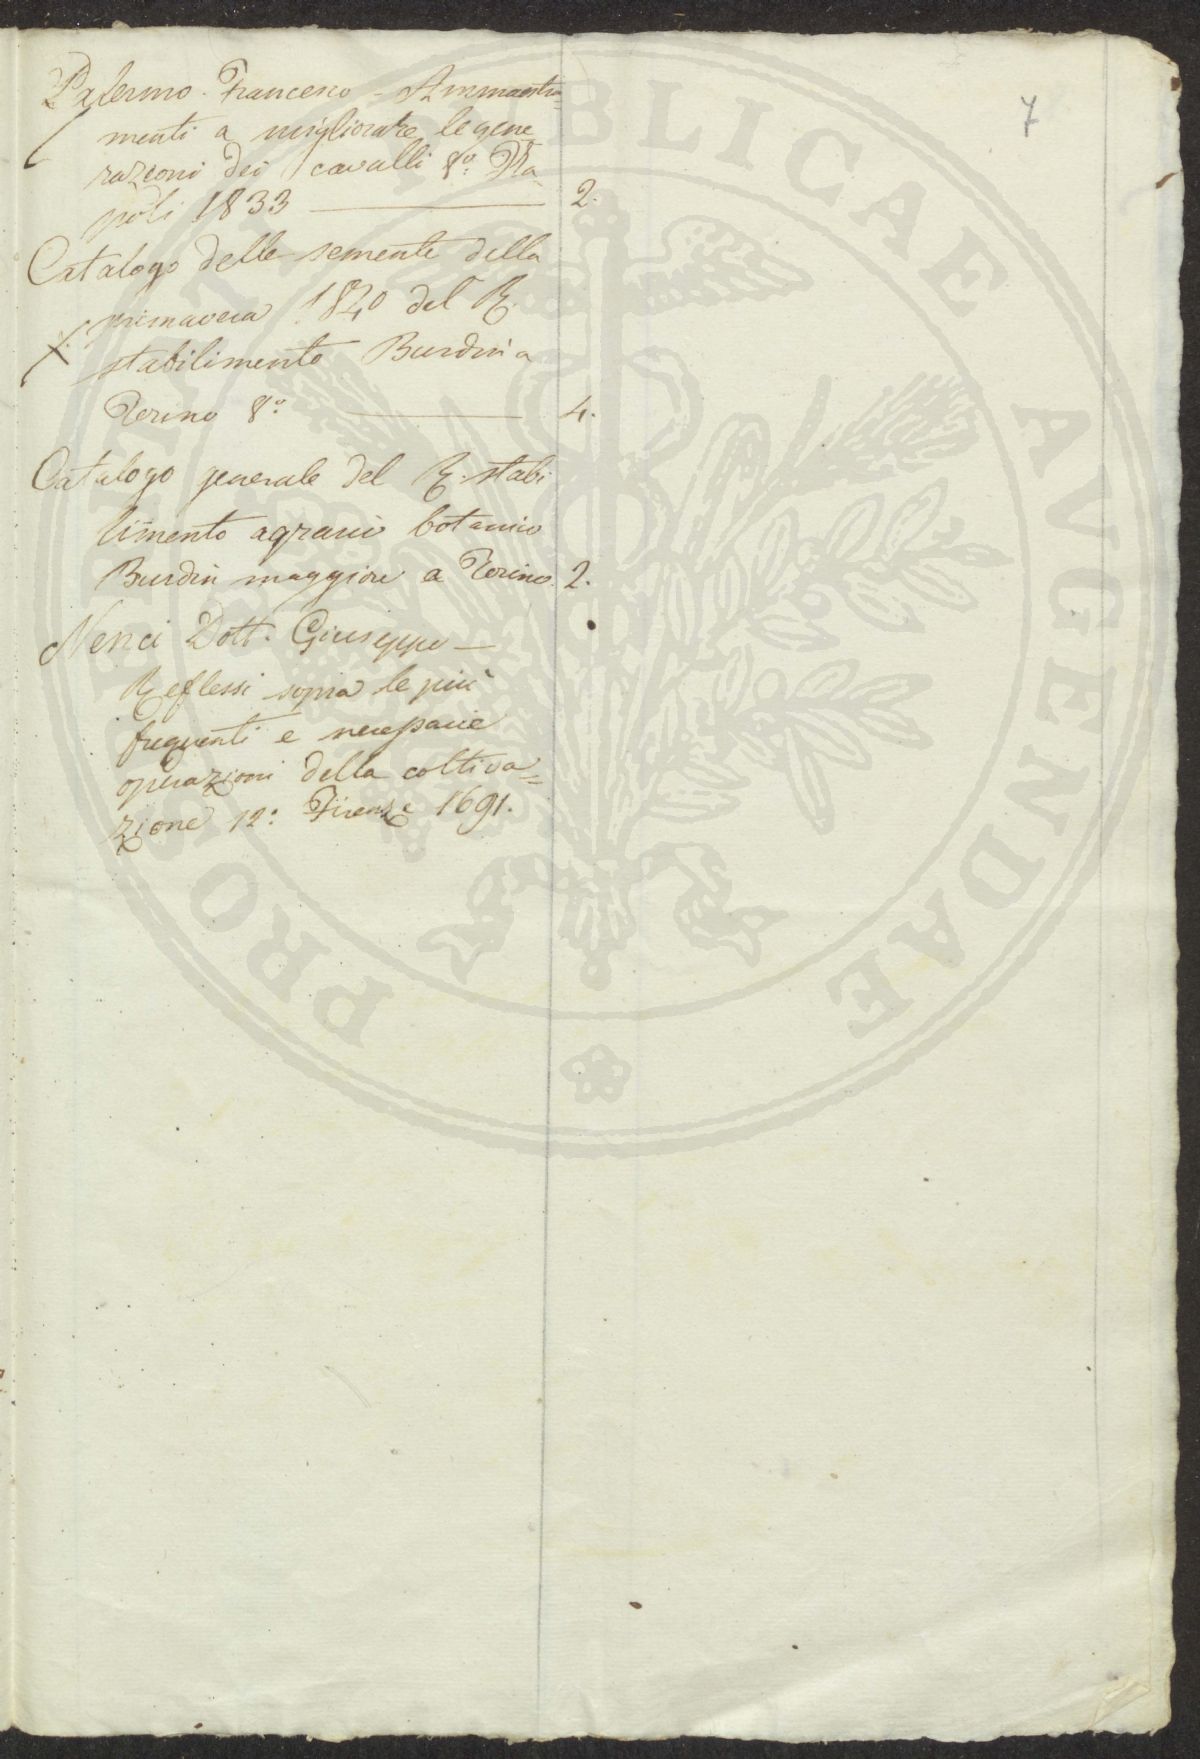 7
Palermo. Francesco - Ammaestra-
menti a migliorare le gene
razioni dei cavalli 8.º Na-
poli 1833 ——— 2.
Catalogo delle semente della
primavera 1840 del R.
stabilimento Burdin a
Torino 8.º ——— 4.
Catalogo generale del R. stabi
limento agrario botanico
Burdin maggiore a Torino. 2.
Nenci Dott. Giuseppe —
Reflessi sopra le più
frequenti e necessarie
operazioni della coltiva=
zione 12.º Firenze 1691.
PROSPERITATI PUBLICAE AVGENDAE